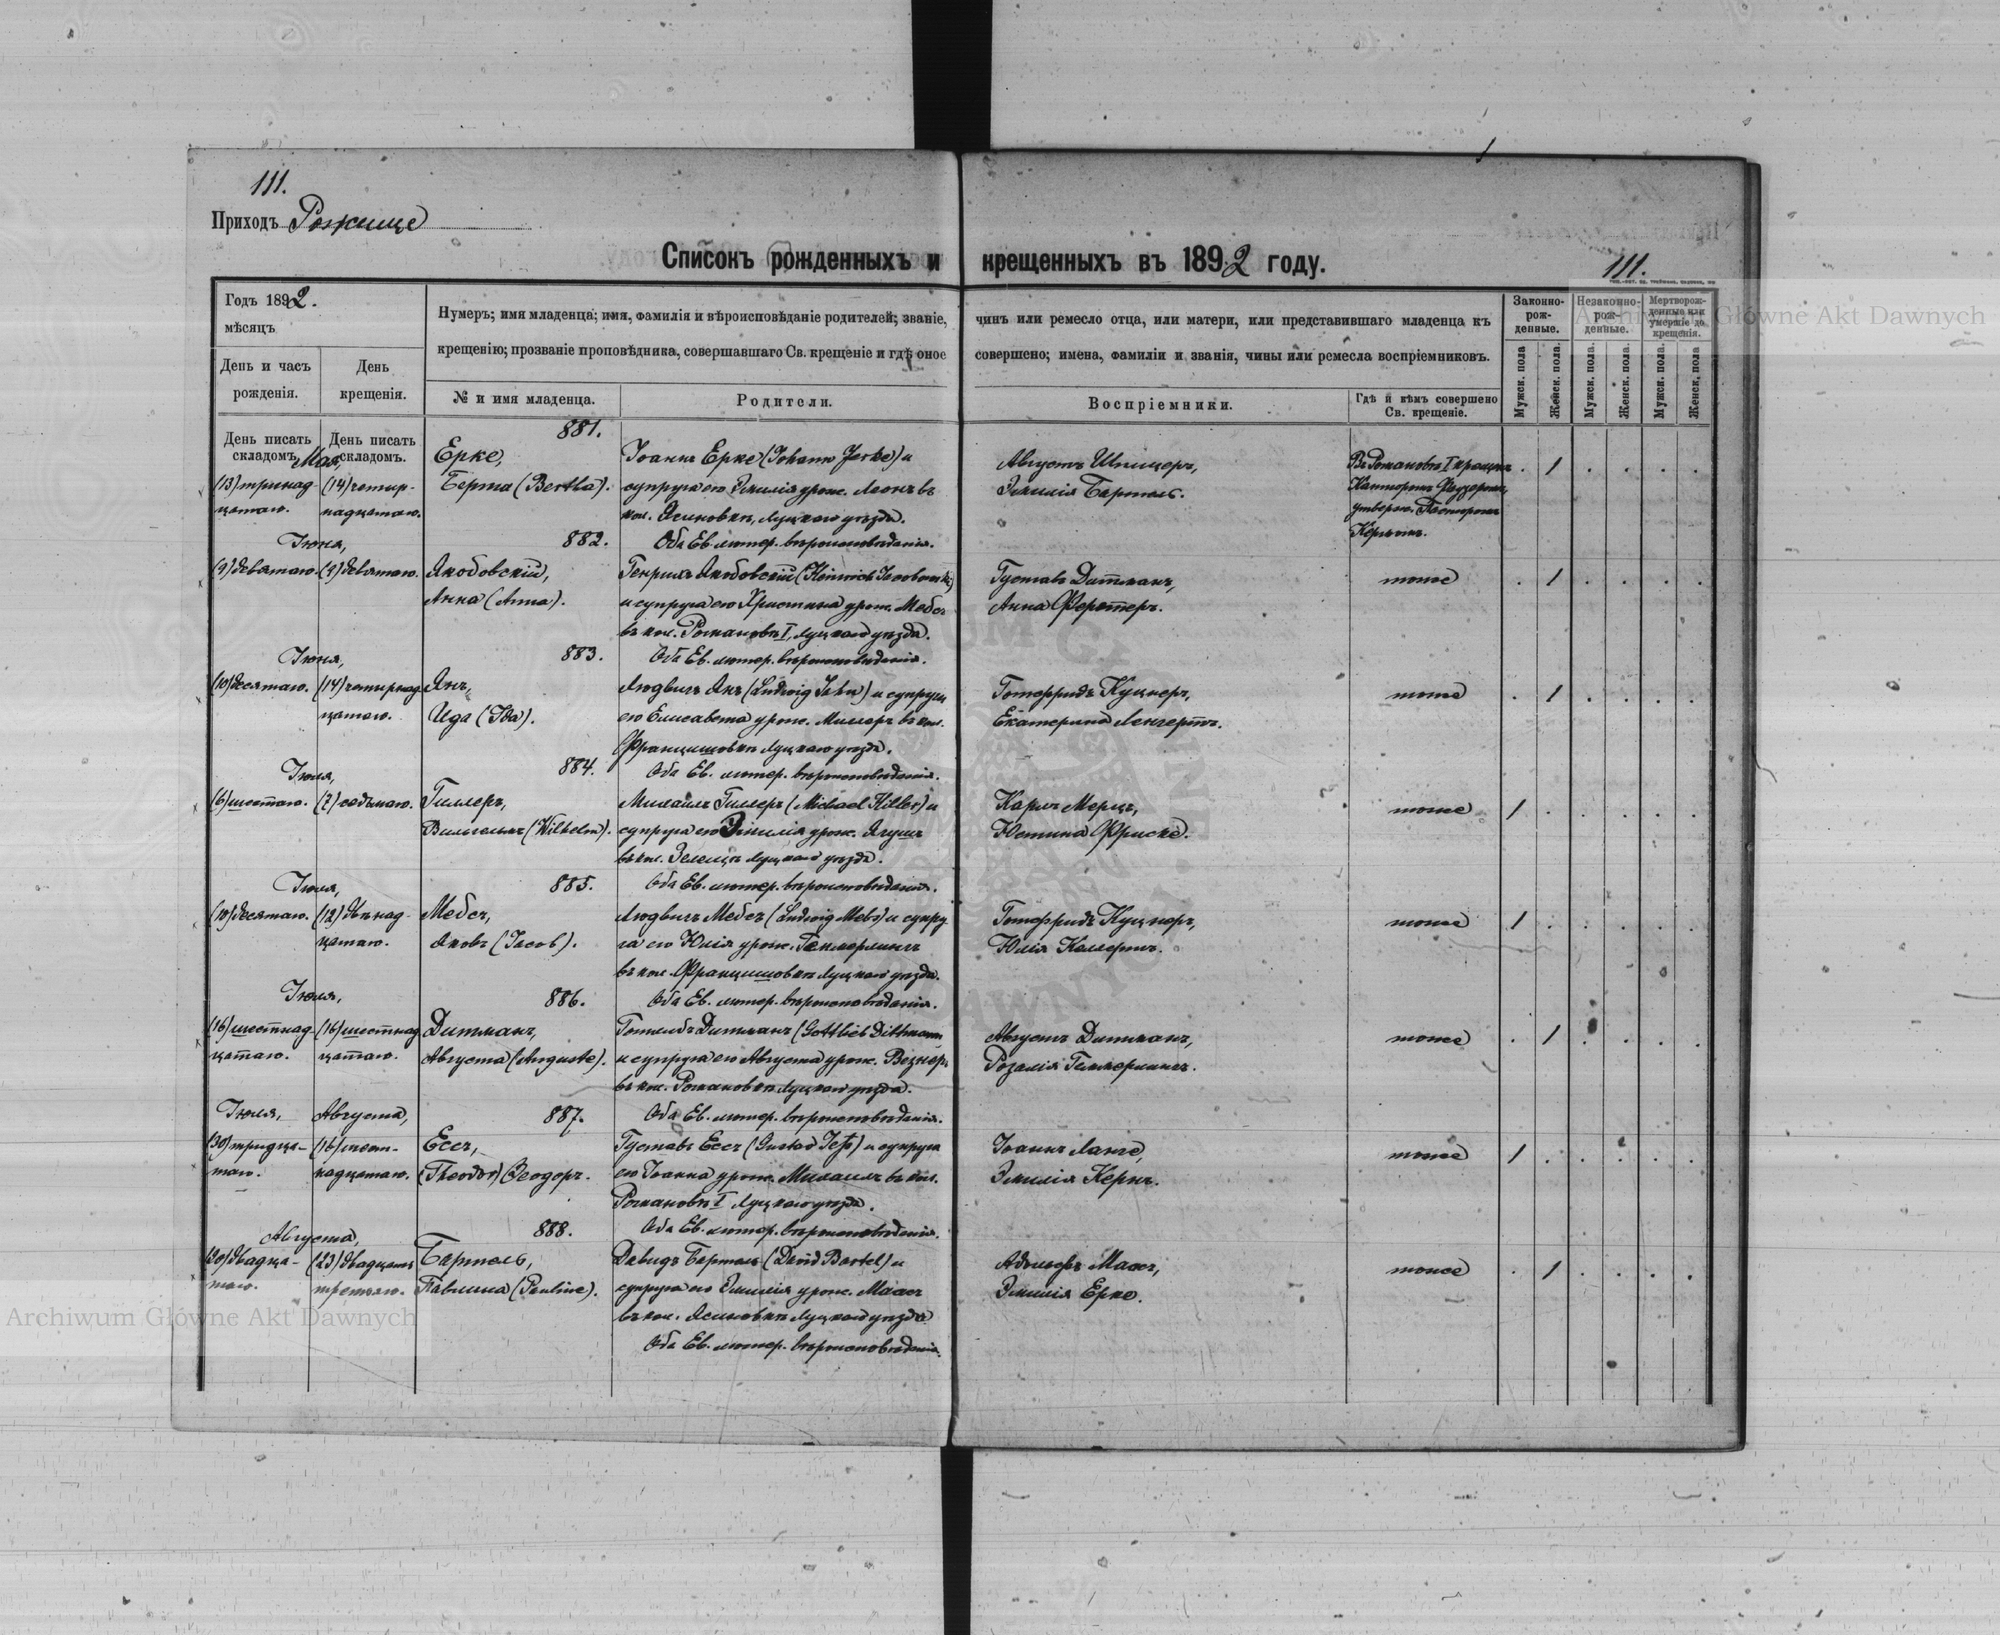 111.
Приходъ Рожище
Списокъ рожденныхъ и крещенныхъ въ 1892 году.
111.
Годъ 1892.
мѣсяцъ
День и часъ рожденія.
День крещенія.
Нумеръ; имя младенца; имя, фамилія и вѣроисповѣданіе родителей; званіе, чинъ или ремесло отца, или матери, или представившаго младенца къ
крещенію; прозваніе проповѣдника, совершавшаго Св. крещеніе и гдѣ оное совершено; имена, фамиліи и званія, чины или ремесла воспріемниковъ.
№ и имя младенца.
Родители.
Воспріемники.
Гдѣ и кѣмъ совершено Св. крещеніе.
Законно-рож-денные.
Незаконно-рож-денные.
Мертворож-денные или умершіе до крещенія.
Мужск. пола
Женск. пола.
Мужск. пола.
Женск. пола.
Мужск. пола.
Женск. пола
День писать складомъ.
День писать складомъ.
881.
Мая,
(13) тринад-
цатаго.
(14) четыр-
надцатаго.
Ерке,
Берта (Bertha).
Іоаннъ Ерке (Johann Jerke) и
супруга его Эмилія урож. Леонъ въ
кол. Ясиновкѣ, Луцкаго уѣзда.
Оба Ев. лютер. вѣроисповѣданія.
Августъ Шпицеръ,
Эмилія Бартель.
Въ Романовкѣ I крещенъ
Канторомъ
утвержд. Пасторомъ
Керномъ.
1
882.
Іюня,
(9) девятаго.
(9) девятаго.
Якобовскій,
Анна (Anna).
Генрихъ Якобовскій (Heinrich Jacobowski)
и супруга его Христина урож. Мебсъ
въ кол. Романовкѣ I, Луцкаго уѣзда.
Оба Ев. лютер. вѣроисповѣданія.
Густавъ Дитманъ,
Анна Ферстеръ.
тоже
1
883.
Іюня,
(10) десятаго.
(14) четырнад-
цатаго.
Янъ,
Ида (Ida).
Людвигъ Янъ (Ludwig Jahn) и супруга
его Елисавета урож. Миллеръ въ кол.
Францишовкѣ Луцкаго уѣзда.
Оба Ев. лютер. вѣроисповѣданія.
Готфридъ Куцнеръ,
Екатерина Ленгертъ.
тоже
1
884.
Іюля,
(6) шестаго.
(7) седьмаго.
Гиллеръ,
Вильгельмъ (Wilhelm).
Михаилъ Гиллеръ (Michael Hiller) и
супруга его Эмилія урож. Ягушъ
въ кол. Зелецѣ Луцкаго уѣзда.
Оба Ев. лютер. вѣроисповѣданія.
Карлъ Мерцъ,
Юстина Фриске.
тоже
1
885.
Іюля,
(10) десятаго.
(12) двѣнад-
цатаго.
Мебсъ,
Яковъ (Jacob).
Людвигъ Мебсъ (Ludwig Mebs) и супру-
га его Юлія урож. Геммерлингъ
въ кол. Францишовкѣ Луцкаго уѣзда.
Оба Ев. лютер. вѣроисповѣданія.
Готфридъ Куцнеръ,
Юлія Коллертъ.
тоже
1
886.
Іюля,
(16) шестнад-
цатаго.
(16) шестнад-
цатаго.
Дитманъ,
Августа (Auguste).
Готлибъ Дитманъ (Gottlieb Dittmann)
и супруга его Августа урож. Везнеръ
въ кол. Романовкѣ Луцкаго уѣзда.
Оба Ев. лютер. вѣроисповѣданія.
Августъ Дитманъ,
Розалія Геммерлингъ.
тоже
1
887.
Іюля,
Августа,
(30) тридца-
таго.
(16) шест-
надцатаго.
Ессъ,
(Theodor) Ѳеодоръ.
Густавъ Ессъ (Gustav Jeß) и супруга
его Іоанна урож. Михаилъ въ кол.
Романовкѣ I Луцкаго уѣзда.
Оба Ев. лютер. вѣроисповѣданія.
Іоаннъ Ланге,
Эмилія Кернъ.
тоже
1
888.
Августа,
(20) двадца-
таго.
(23) двадцать
третьяго.
Бартель,
Павлина (Pauline).
Давидъ Бартель (David Bartel) и
супруга его Эмилія урож. Маасъ
въ кол. Ясиновкѣ Луцкаго уѣзда
Оба Ев. лютер. вѣроисповѣданія.
Адольфъ Маасъ,
Эмилія Ерке.
тоже
1
Archiwum Główne Akt Dawnych
Archiwum Główne Akt Dawnych